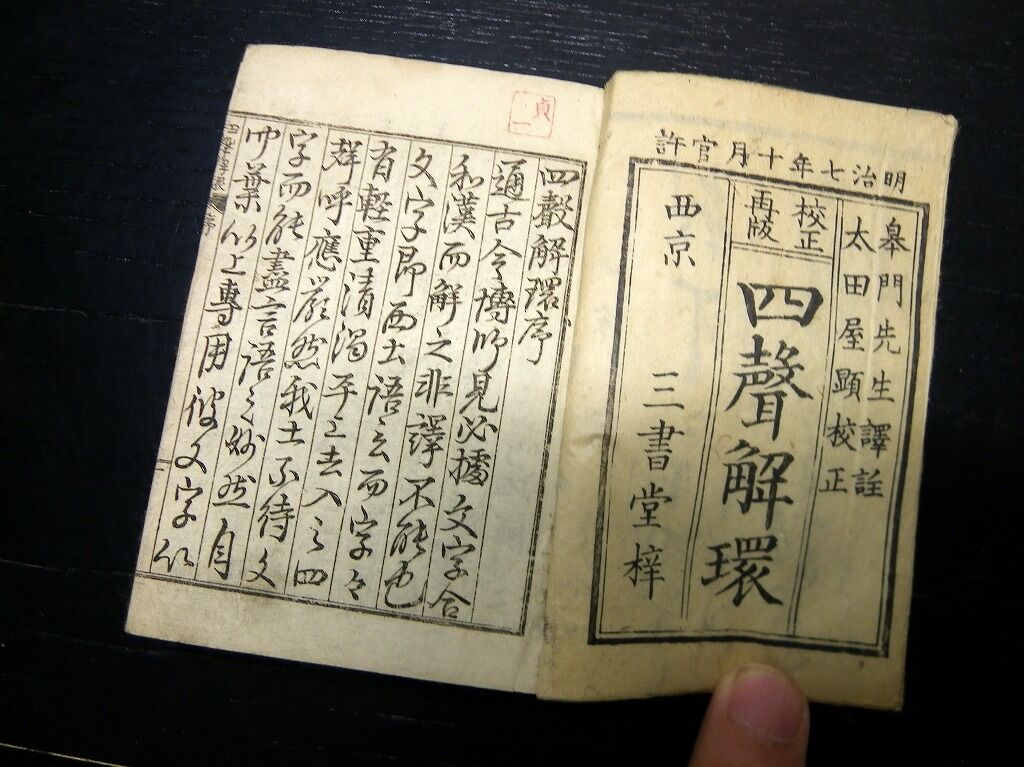 明治七年十月官許
皋門先生譯註
太田屋顕校正
校正
再版
四聲解環
西京 三書堂梓
貞一
四聲解環序
通古今博所見必據文字合
和漢而解之非譯不能也
文字即西土語言而字々
有輕重清濁平上去入之四
聲呼應嚴然我土不待文
字而能盡言語之妙然自
中葉以上專用彼文字以
四聲解環 序